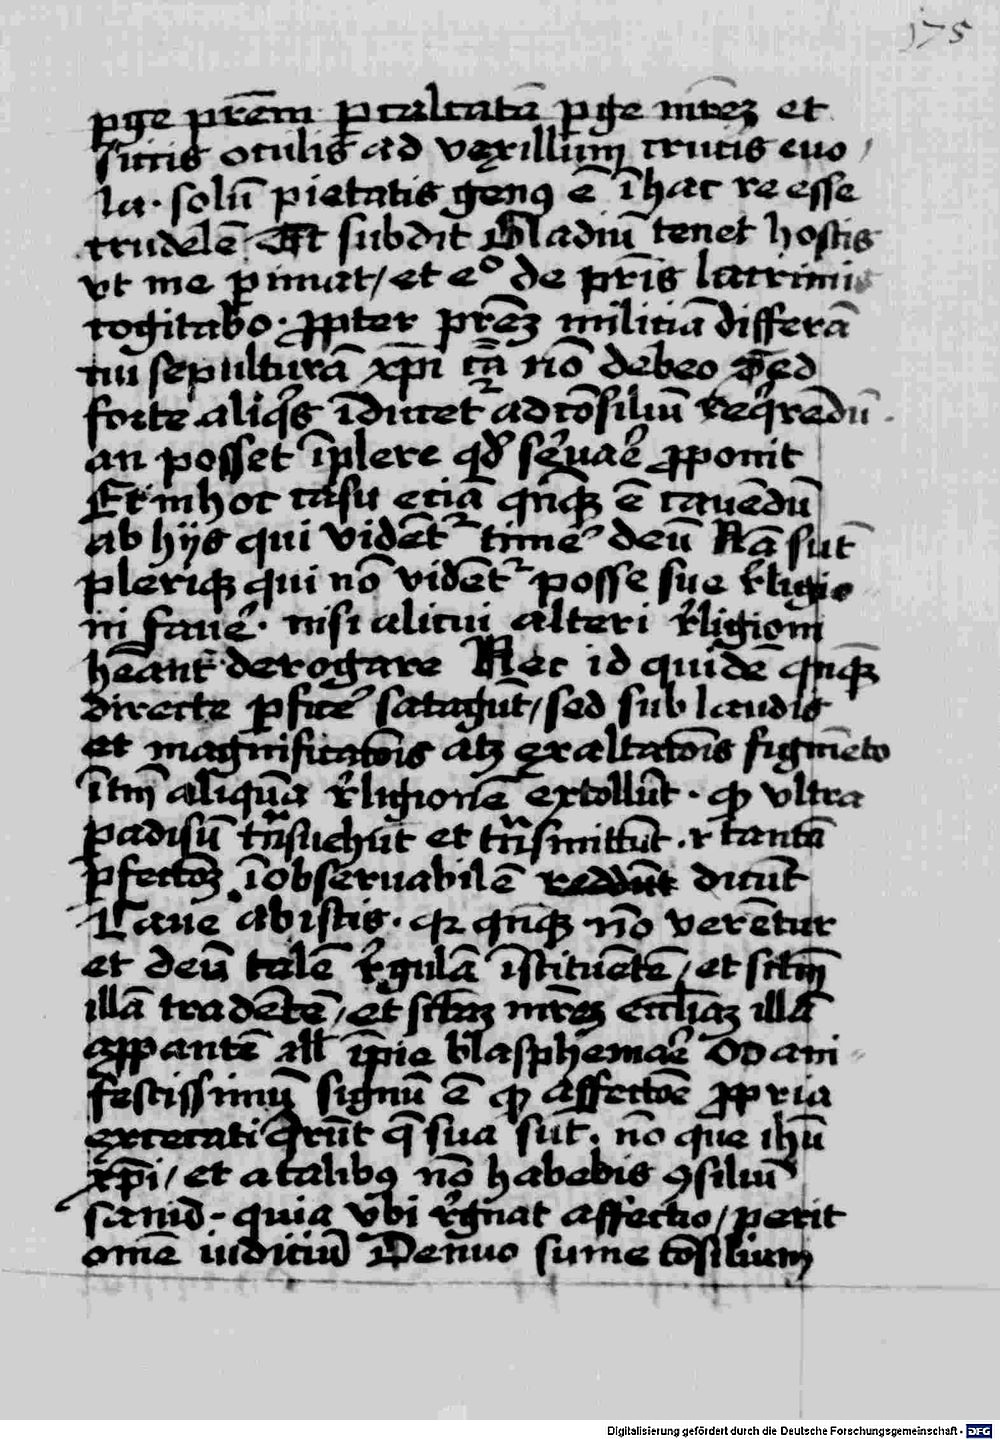 175
pge prēm ꝑculcatā pge mrēꝫ et
siccis oculis ad vexillum crucis euo
la. solū pietatis genꝰ ē ī hac re esse
crudelē Et subdit Gladiū tenet hostis
vt me ꝑimat / et eº de prīs lacrimis
cogitabo. ꝓpter prēꝫ militiā differā
cui sepulturā xp̄i cā nō debeo Sed
forte aliqͥs īducetʳ ad cōsiliū reqͥrēdū
an posset īplere qd̛ seruar̄ ꝓponit
Et in hoc casu eciā qn̄qꝫ ē cauēdū
ab hijs qui vidētʳ timeˀ deū Nā sūt
pleriqꝫ qui nō vidētʳ posse sue r̄ligio
ni faueˀ. nisi alicui alteri r̄ligioni
hēant derogare Nec id quidē qn̄qꝫ
directe ꝑficeˀ satagūt / sed sub laudis
et magnificatōis atꝫ exaltatōis figmēto
ītm̄ aliquā r̄ligionē extollūt. ꝙ vltra
padisū trn̄suehūt et trn̄smittūt. ꝛ tantā
ꝑfectōꝫ īobseruabilē reddūt dicūt
Caue ab istis. qꝛ qn̄qꝫ nō verētur
et deū talē r̄gulā īstituētē / et sctm̄
illā tradētē / et sctāꝫ mrēꝫ eccliaꝫ illā
aꝓpantē all̄ īpie blasphemar̄ Mani
festissimū signū ē ꝙ affectōe ꝓpria
excecati qr̄ūt q̄ sua sūt. nō que ihū
xp̄i / et a talibꝰ nō habebis ꝯsiliū
sanū - quia vbi r̄gnat affectio / perit
omē iudiciū Denuo sume cōsilium
Digitalisierung gefördert durch die Deutsche Forschungsgemeinschaft - DFG